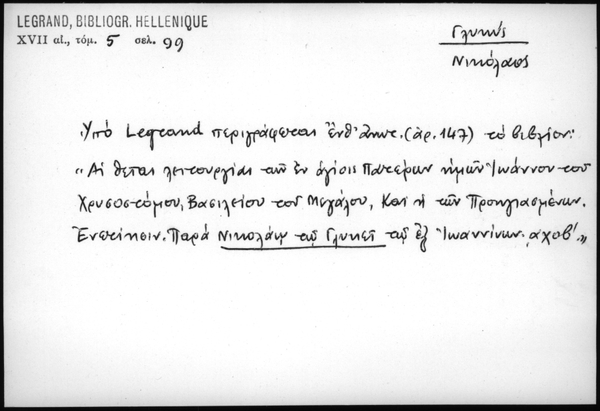 LEGRAND, BIBLIOGR. HELLENIQUE
XVII αἰ., τόμ. 5 σελ. 99
Γλυκύς
Νικόλαος
Ὑπό Legrand περιγράφεται ἐνθ' ἀνωτ. (ἀρ. 147) τό βιβλίον:
"Αἱ θεῖαι λειτουργίαι τῶν ἐν ἁγίοις Πατέρων ἡμῶν Ἰωάννου τοῦ
Χρυσοστόμου, Βασιλείου τοῦ Μεγάλου, Καί ἡ τῶν Προηγιασμένων.
Ἐνετίησιν. Παρά Νικολάῳ τῷ Γλυκεῖ τῷ ἐξ Ἰωαννίνων. αχοβ'."